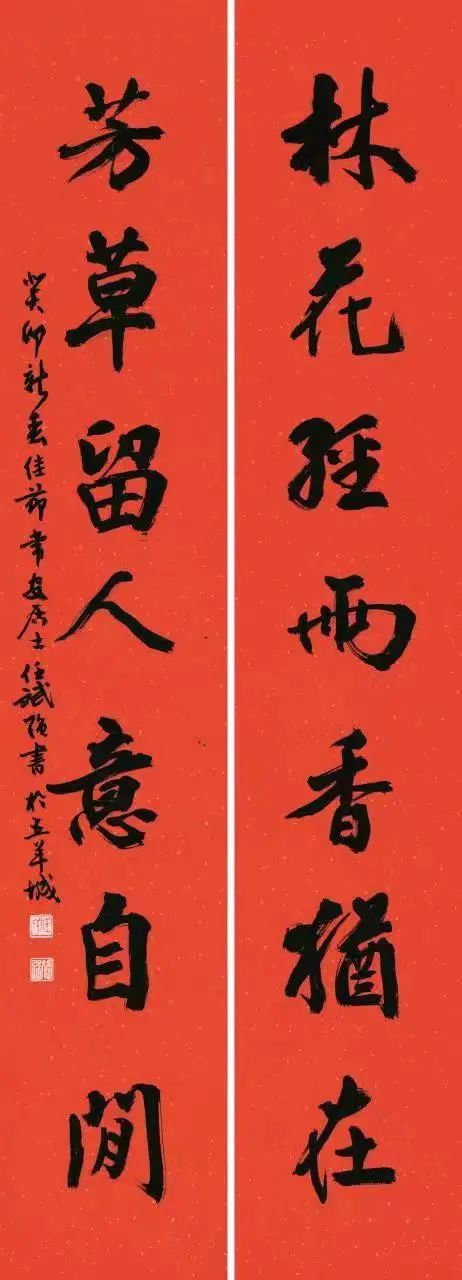 林花經雨香猶在
芳草留人意自閒
癸卯新春佳節常安居士任斌強書於五羊城